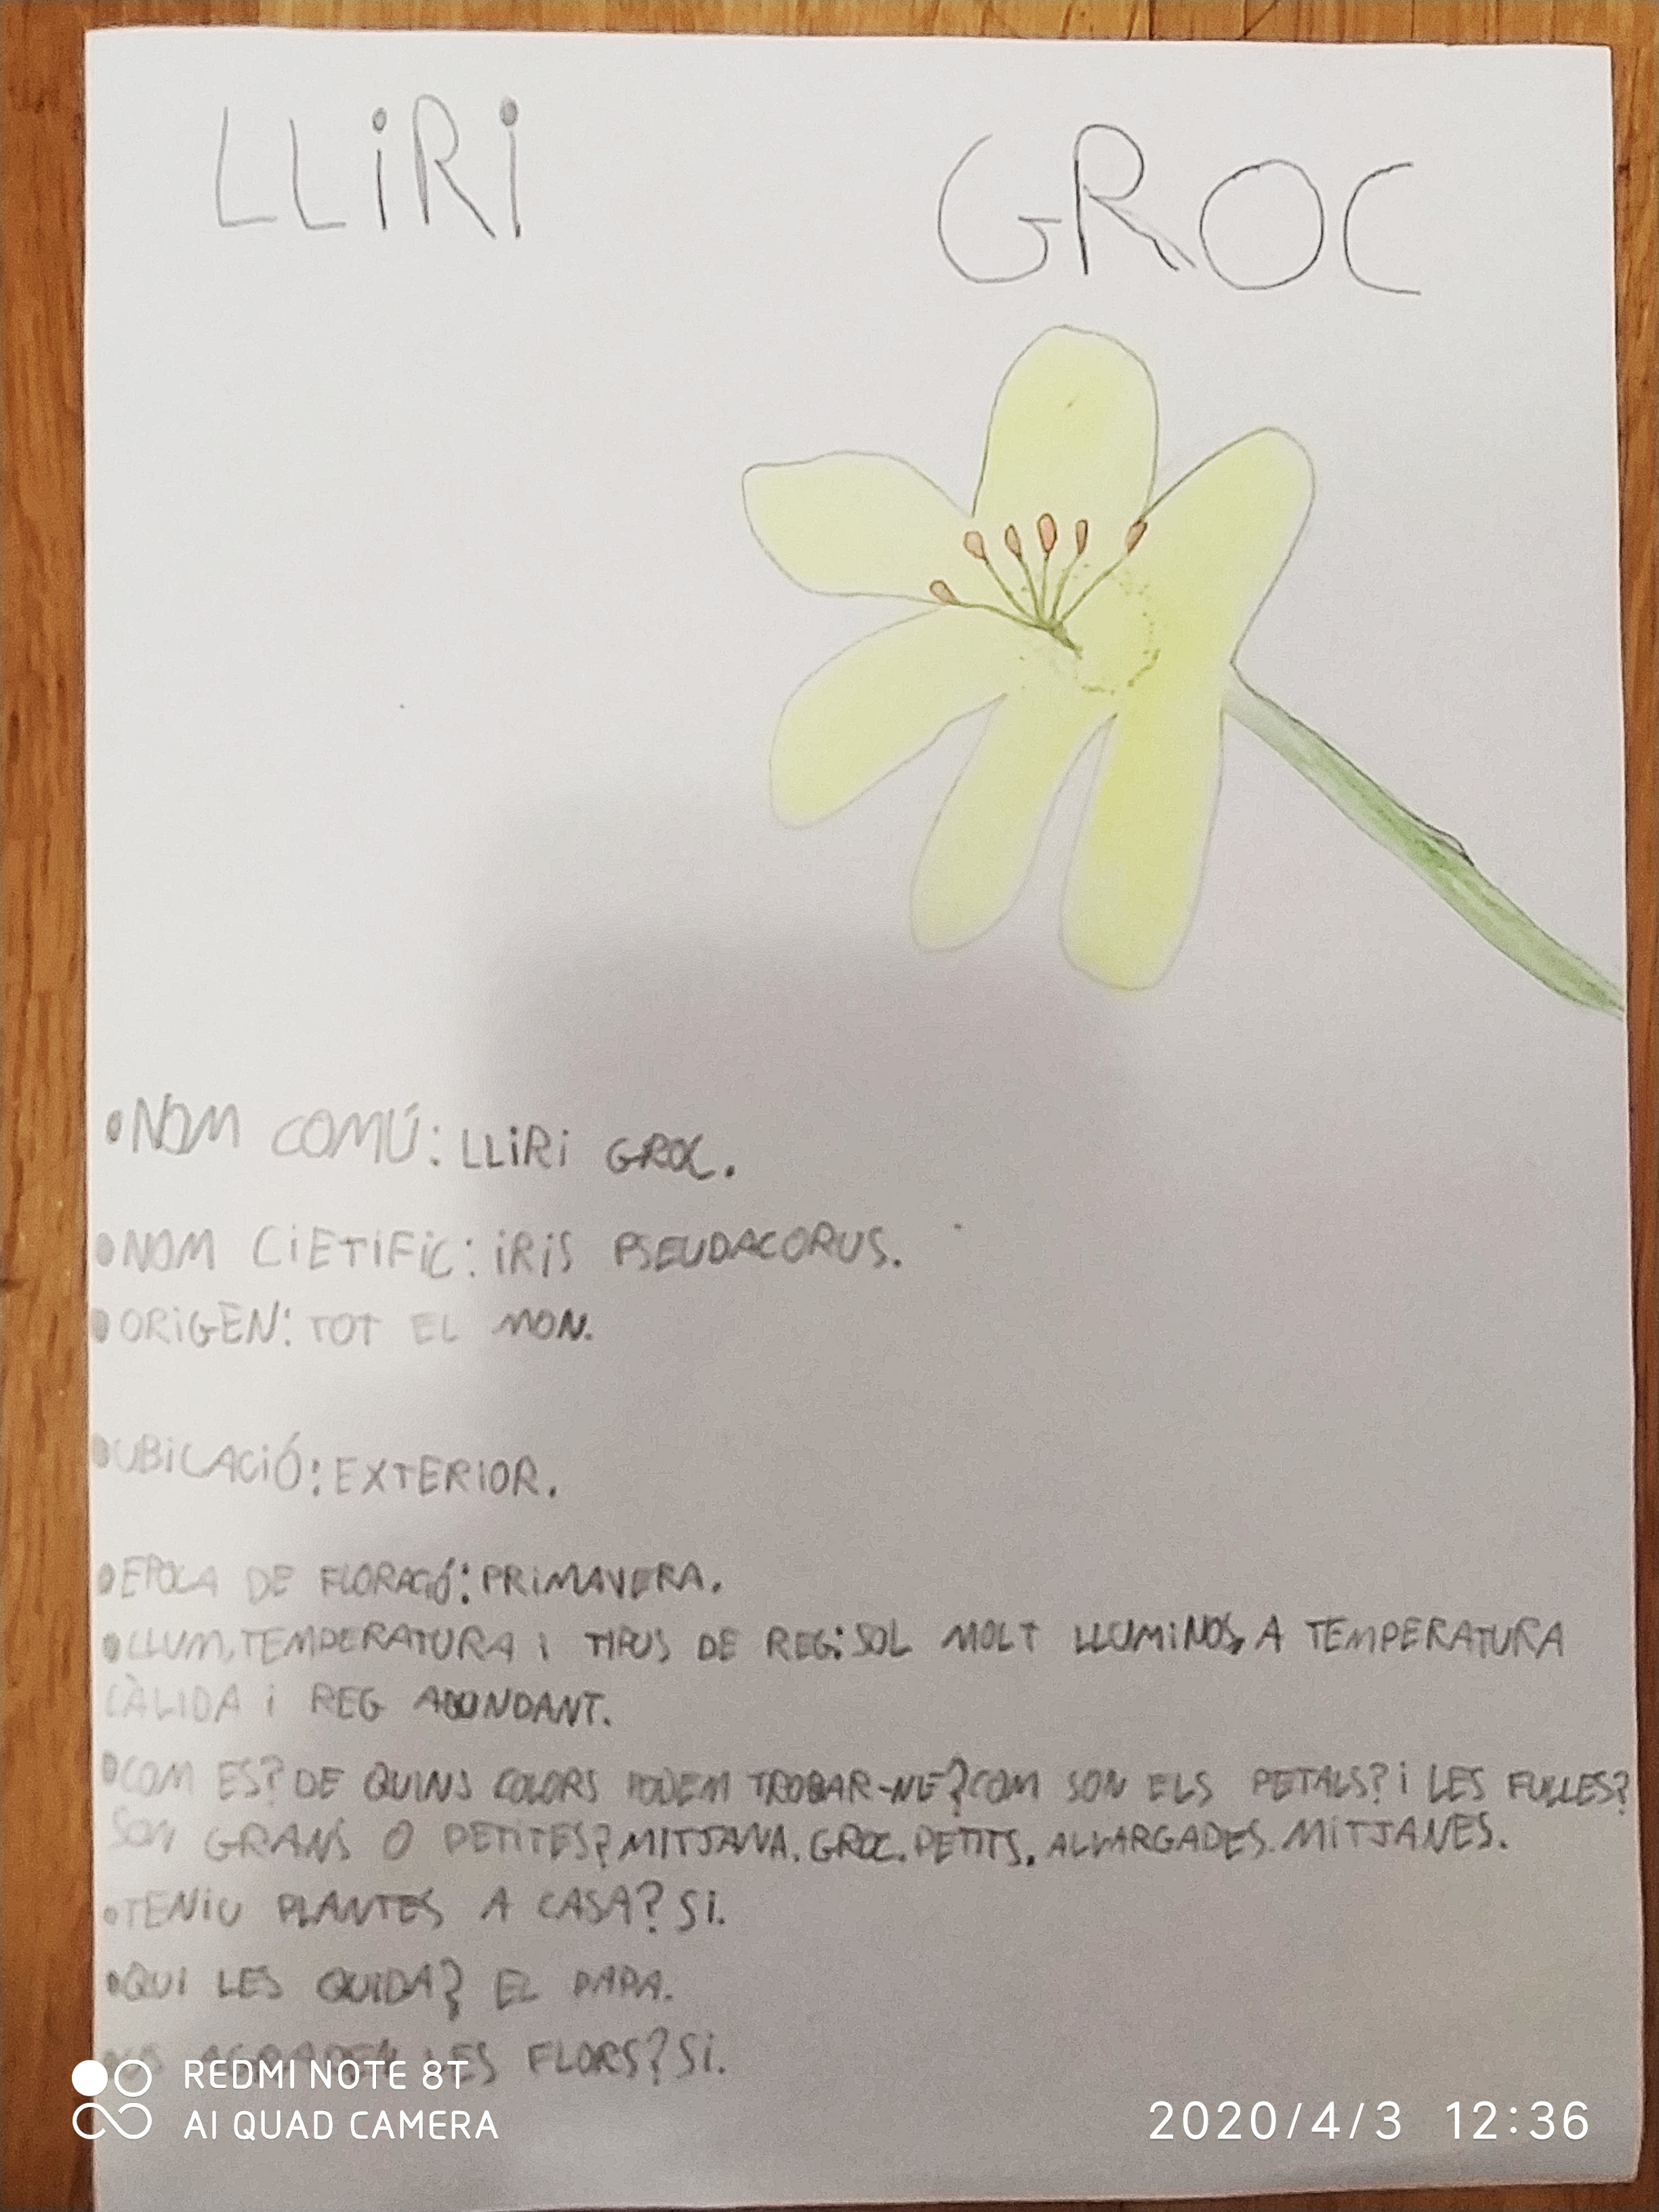 LLiRi GROC
•NOM COMÚ: LLiRi GROC.
•NOM CiETIFiC: iRiS PSEUDACORUS.
•ORiGEN: TOT EL MON.
•UBiCACiÓ: EXTERIOR.
•EPOCA DE FLORACiÓ: PRiMAVERA.
•LLUM, TEMPERATURA i TIPUS DE REG: SOL MOLT LLUMiNOS, A TEMPERATURA
CÀLIDA i REG ABUNDANT.
•COM ES? DE QUINS COLORS PODEM TROBAR-NE? COM SON ELS PETALS? i LES FULLES?
SON GRANS O PETITES? MITJANA. GROC. PETITS. ALLARGADES. MiTJANES.
•TENiU PLANTES A CASA? Si.
•QUI LES QUIDA? EL PAPA.
AGRADEN LES FLORS? Si.
REDMI NOTE 8T
AI QUAD CAMERA
2020/4/3 12:36